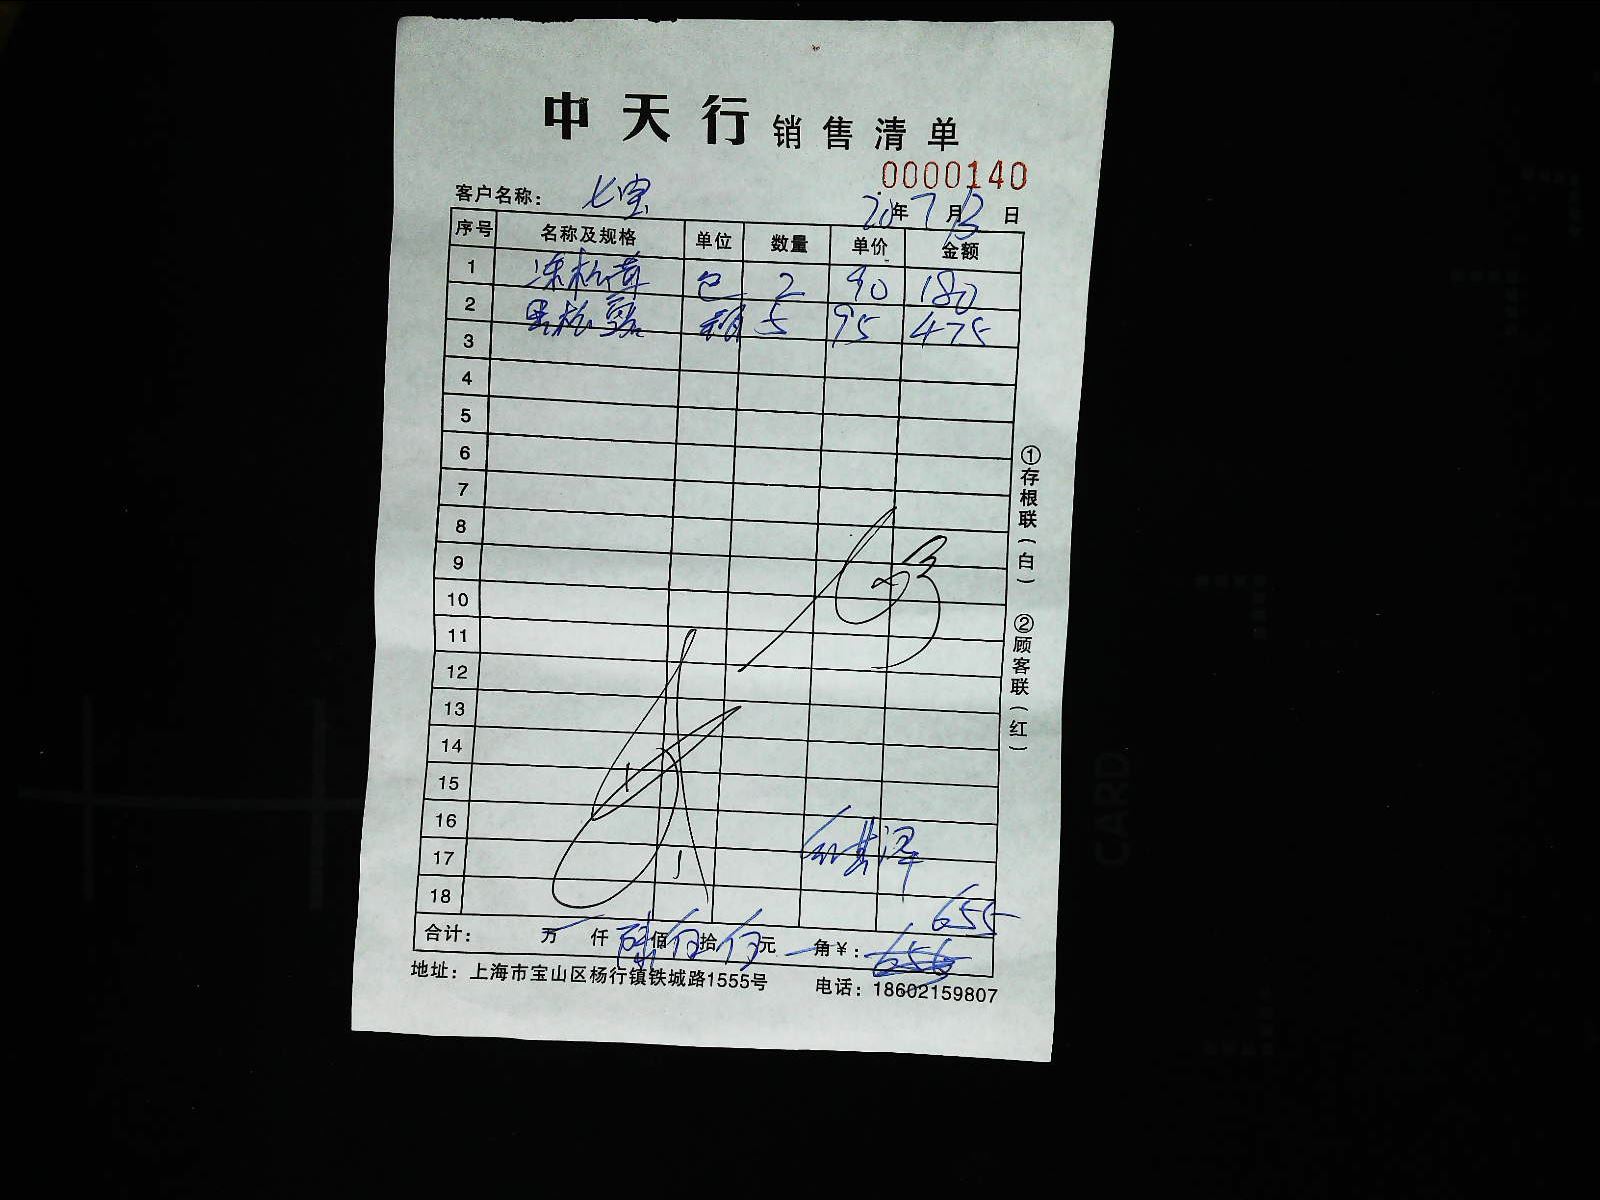 中天行销售清单
0000140
客户名称： 七宝 20年7月13日
序号 名称及规格 单位 数量 单价 金额
1 冻松茸 包 2 90 180
2 黑松露 5 95 475
3
4
5
6
7
8
9
10
11
12
13
14
15
16
17
18
655
合计： 万 仟 陆佰伍拾伍元 角￥：
地址：上海市宝山区杨行镇铁城路1555号 电话：18602159807
①存根联（白） ②顾客联（红）